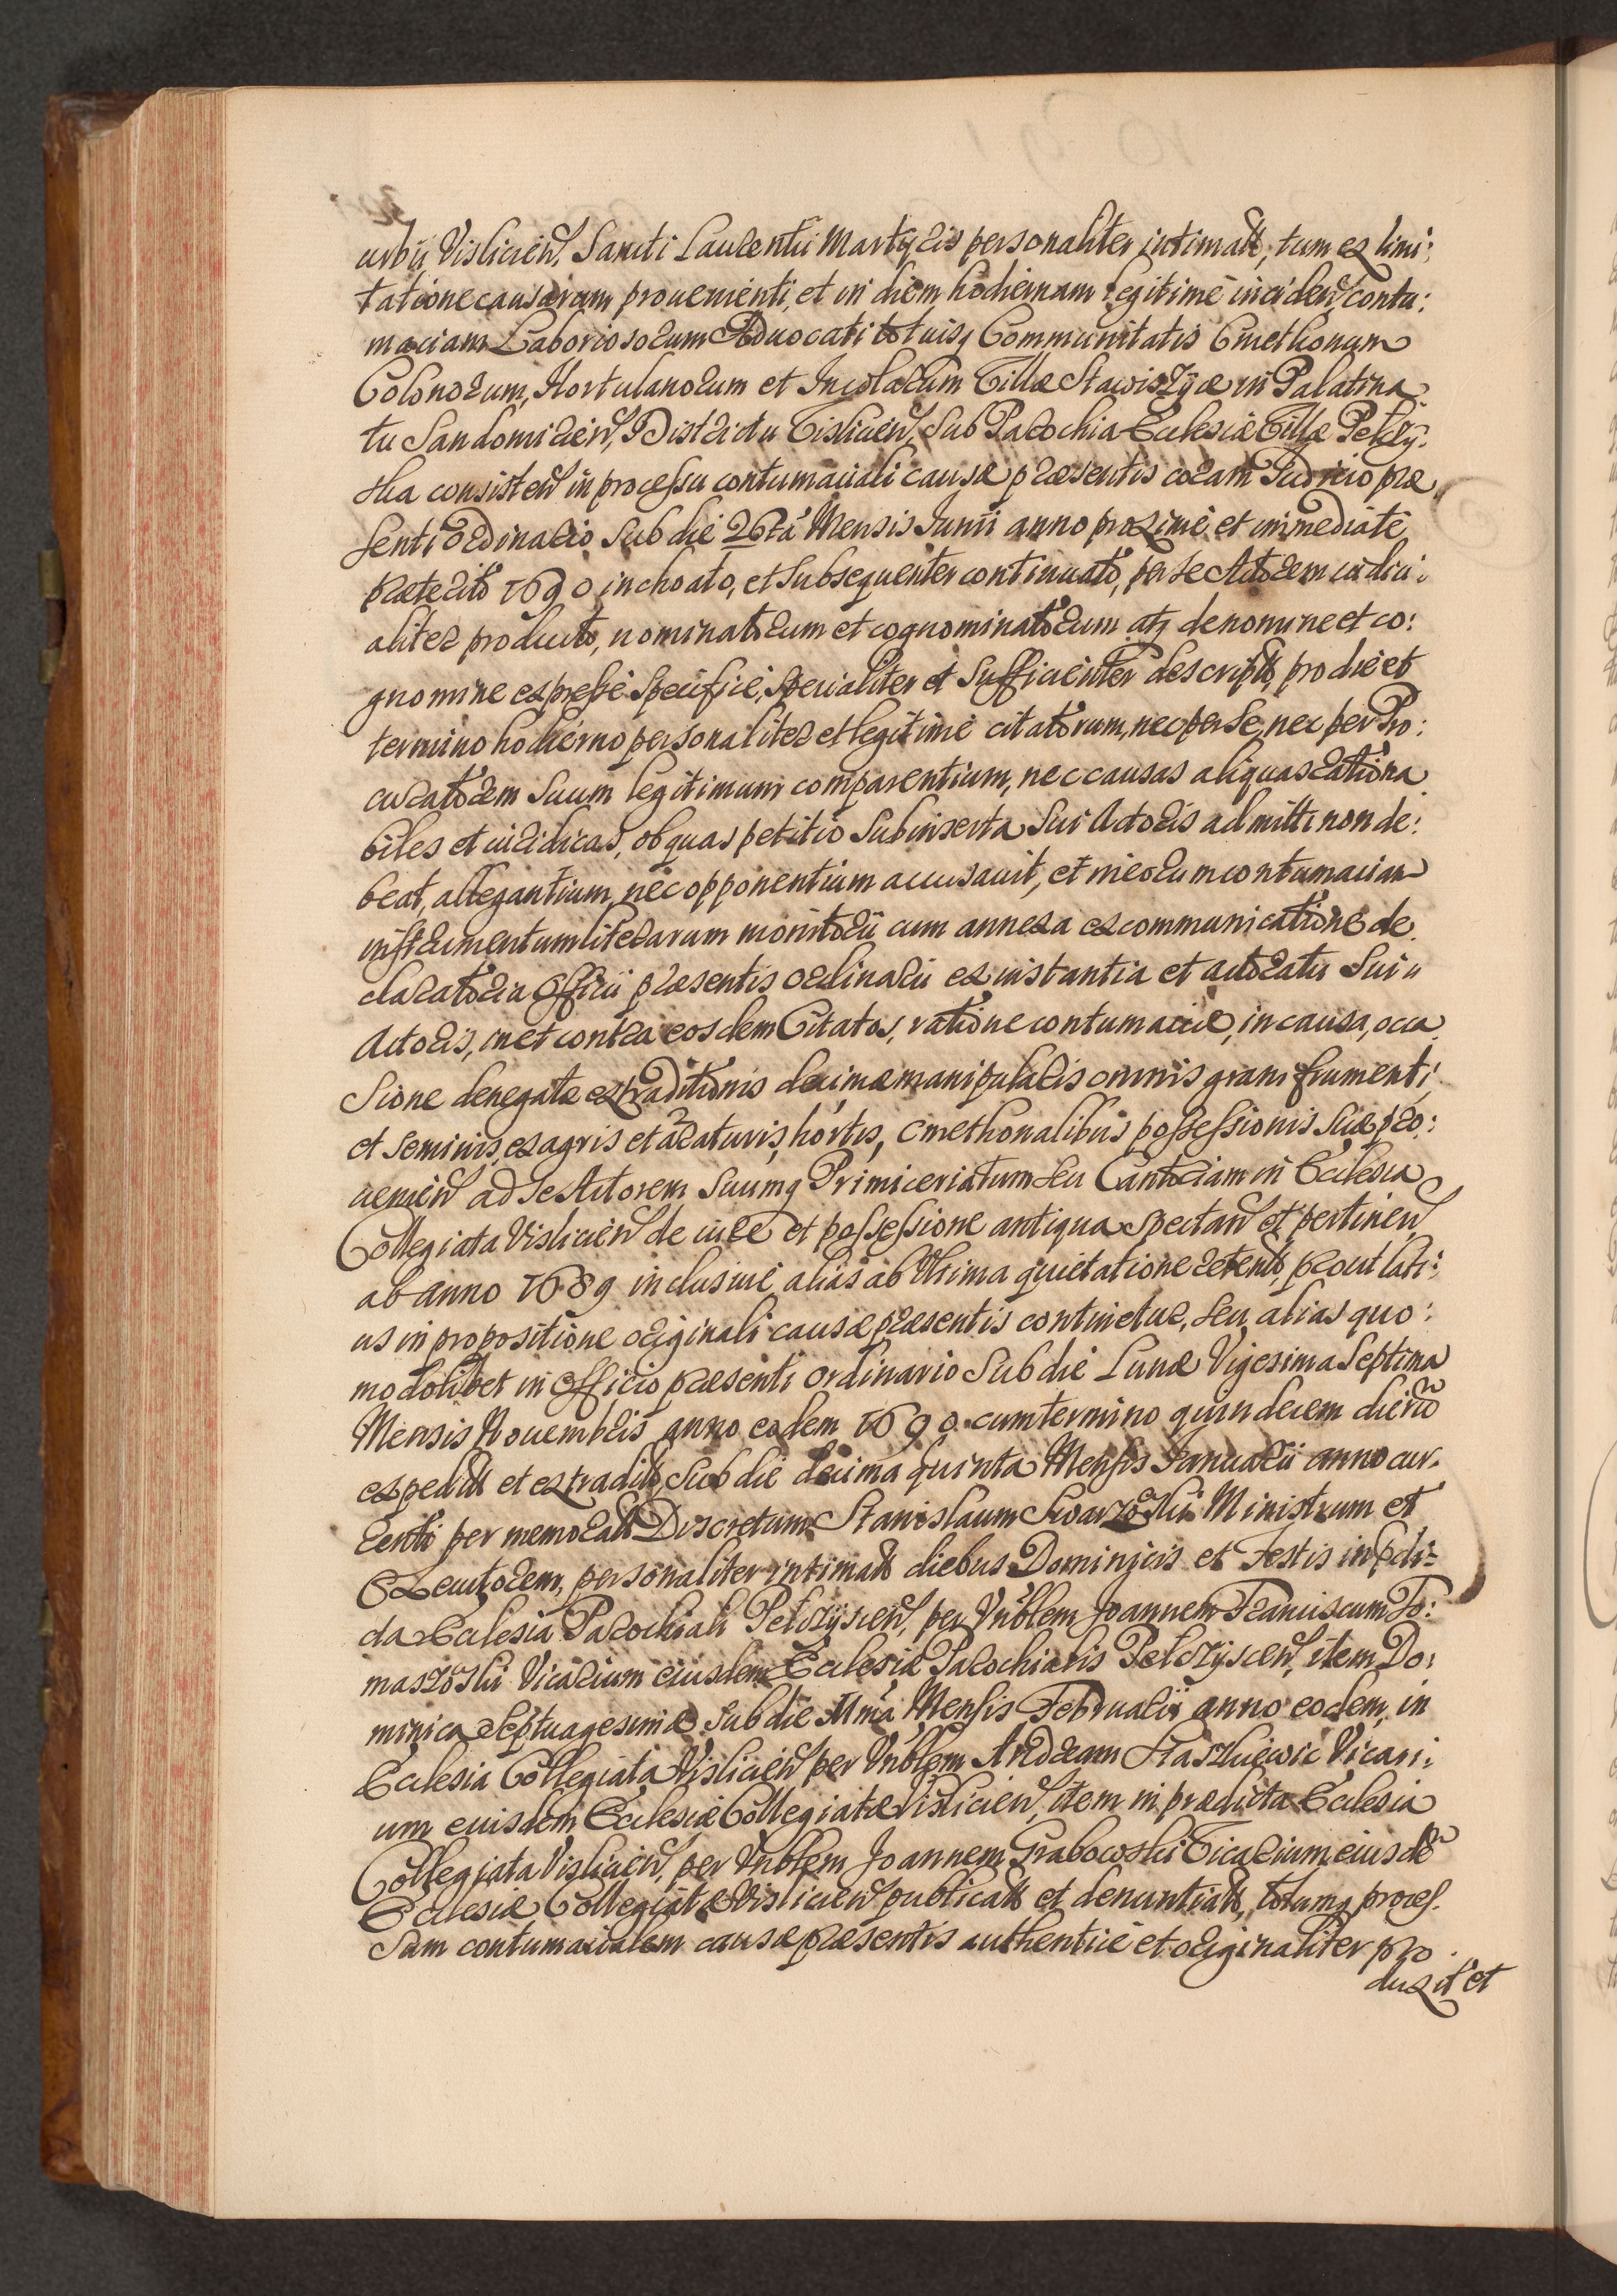 urbii Vislicień, Sancti Laurentii Martyris personaliter intimatt, tum ex limi:
tatione causarum prouenienti, et in diem hodiernam legitimè inciden, contu:
maciam Laboriosorum Aduocati totiusq Communitatis Cmethonum
Colonorum, Hortulanorum et Incolarum Villæ Stawiszyæ in Palatina
tu Sandomirien, Districtu Vislicien, Sub Parochia Ecclesiæ Villæ Pełczy:
ska consisten in processu contumaciali causæ præsentis coram Judicio præ
senti Ordinario sub die 26ta Mensis Junii anno proximè et immediatè
præterito 1690 inchoato, et subsequenter continuato, per se Actorem iudici:
aliter producto, nominatorum et cognominatorum atq de nomine et co:
gnomine expressè specificè, specialiter et sufficienter descriptt, pro die et
termino hodierno personaliter et legitimè citatorum, nec per se, nec per Pro:
curatorem suum legitimum comparentium, nec causas aliquas rationa
biles et iuridicas, ob quas petitio subinserta sui Actoris admitti non de:
beat, allegantium, nec opponentium accusauit, et in eorum contumaciam
instrumentum literarum monitorii cum annexa excommunicatione de
claratoria Officii præsentis ordinarii ex instantia et actoratu sui
Actoris, in et contra eosdem Citatos, ratione contumaciæ, in causa, occa
sione denegatæ extraditionis decimæ manipularis omnis grani frumenti,
et seminis, ex agris et araturis, hortis, cmethonalibus possessionis suæ pro:
uenien ad se Actorem suumq Primiceriatum seu Cantoriam in Ecclesia
Collegiata Vislicien de iure et possessione antiqua spectan et pertinen
ab anno 1689 inclusiuè alias ab Vltima quietatione retentt, prout lati:
us in propositione originali causæ præsentis continetur, seu alias quo:
modolibet in Officio præsenti Ordinario sub die Lunæ Vigesima Septima
Mensis Nouembris anno eodem 1690. cum termino quindecem dierū
expeditt et extraditt, sub die decima quinta Mensis Januarii anno cur.
renti per memoratt Discretum Stanislaum Ministrum et
Executorem, personaliter intimatt diebus Dominicis et Festis in
da Ecclesia Parochiali Pełczyscien, per Vnblem Joannem Franciscum To:
maszoski Vicarium eiusdem Ecclesiæ Parochialis Pełczyscen, item Do:
minica Septuagesimæ sub die XIma Mensis Februarii anno eodem, in
Ecclesia Collegiata Vislicien per Vnblem Andream Staszkiewic Vicari:
um eiusdem Ecclesiæ Collegiatæ Vislicien, item in prædicta Ecclesia
Collegiata Vislicien, per Vnblem Joannem Grabowski Vicarium eiusdē
Ecclesiæ Collegiatæ Vislicien publicatt et denuntiatt, totumq proces.
sum contumacialem causæ præsentis authenticè et originaliter pro
duxit et